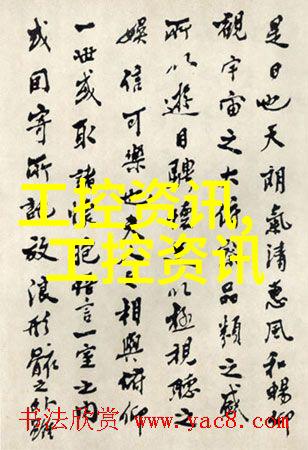 是日也天朗氣清惠風和暢仰
觀宇宙之大俯品類之盛
所以遊目騁懷以極視聽之
娛信可樂也夫人相與俯仰
一世或取諸懷抱悟言一室之内
或因寄所託放浪形骸之外雖
工控资讯,
工控资讯
书法欣赏 www.yac8.com